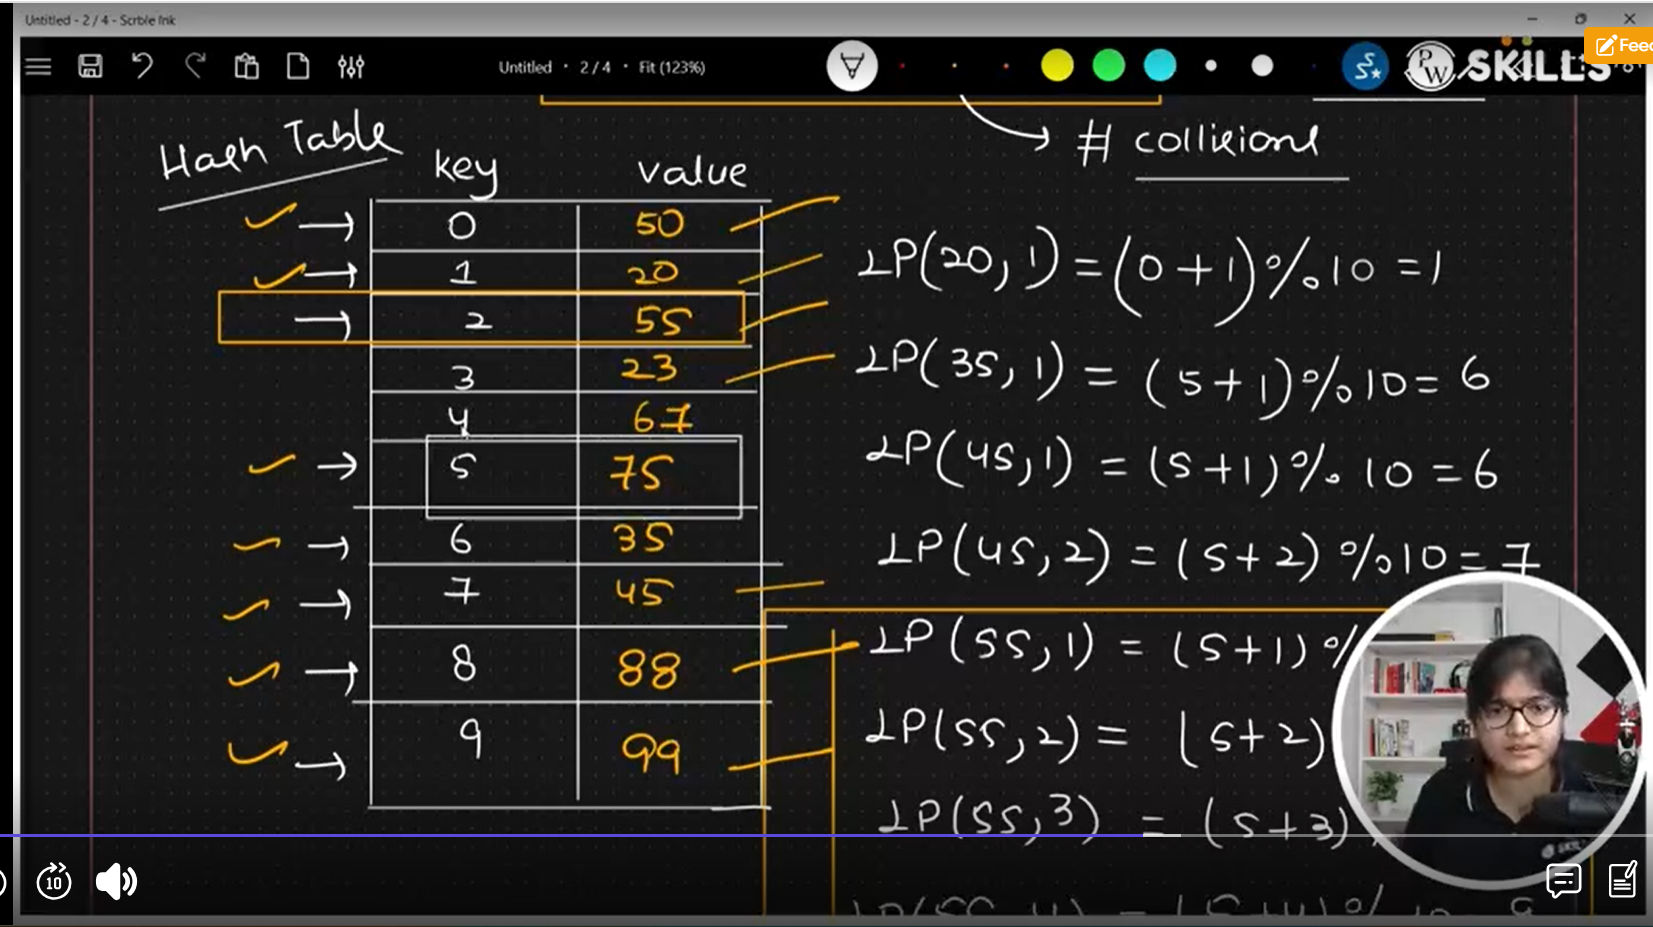 Untitled - 2 / 4 - Scrble Ink
Untitled • 2 / 4 • Fit (123%)
PW SKILLS
Feed
Hash Table
key value
# collisions
0 50
1 20
2 55
3 23
4 67
5 75
6 35
7 45
8 88
9 99
LP(20, 1) = (0 + 1) % 10 = 1
LP(35, 1) = (5 + 1) % 10 = 6
LP(45, 1) = (5 + 1) % 10 = 6
LP(45, 2) = (5 + 2) % 10 = 7
LP(55, 1) = (5 + 1) %
LP(55, 2) = (5 + 2)
LP(55, 3) = (5 + 3)
10